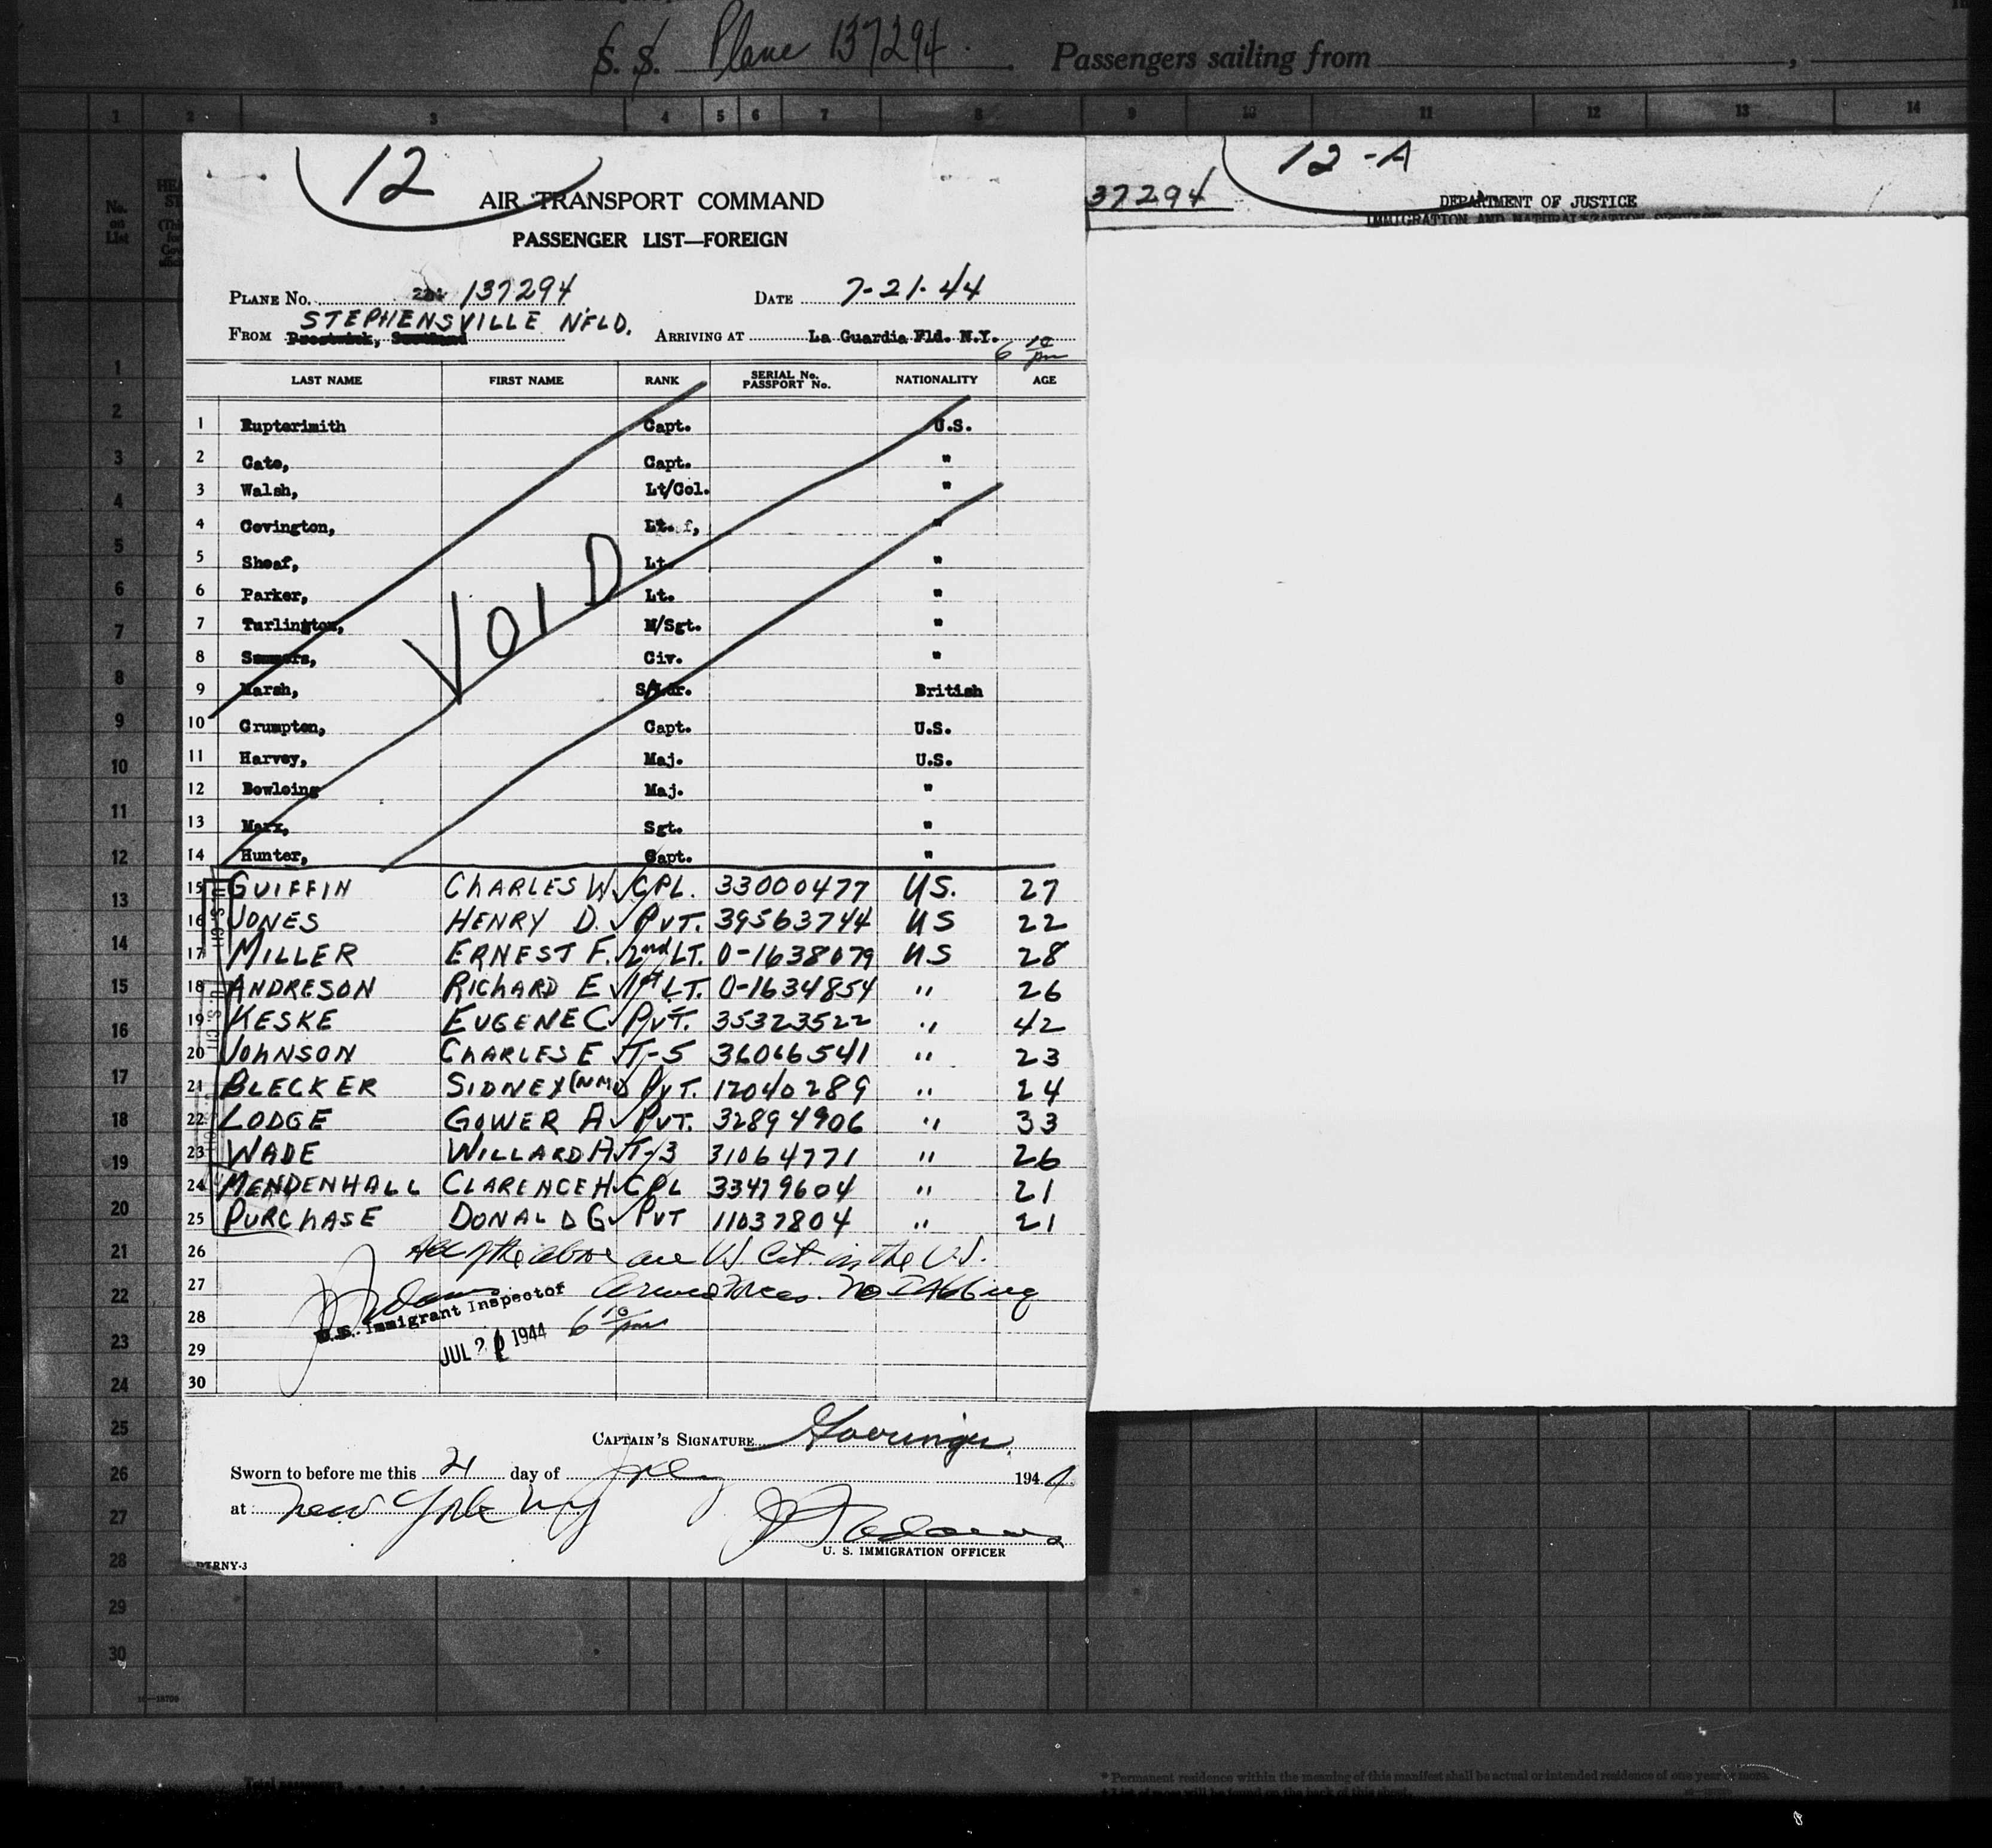 S. S. Plane 137294. Passengers sailing from ,
1 2 3 4 5 6 7 8 9 10 11 12 13 14
No. on List
12
12-A
AIR TRANSPORT COMMAND
37294 DEPARTMENT OF JUSTICE
IMMIGRATION AND NATURALIZATION SERVICE
PASSENGER LIST—FOREIGN
PLANE NO. 137294 DATE 7-21-44
STEPHENSVILLE NFLD.
FROM Prestwick, Scotland ARRIVING AT La Guardia Fld. N.Y.
6 10 pm
LAST NAME FIRST NAME RANK SERIAL No. PASSPORT No. NATIONALITY AGE
1 Rupterimith Capt. U.S.
2 Gate, Capt. "
3 Walsh, Lt/Col. "
4 Covington, Lt. "
5 Sheaf, Lt. "
6 Parker, Lt. "
7 Turlington, M/Sgt. "
8 Sommers, Civ. "
9 Marsh, S/Ldr. British
10 Crumpton, Capt. U.S.
11 Harvey, Maj. U.S.
12 Bowleing Maj. "
13 Marx, Sgt. "
14 Hunter, Capt. "
VOID
15 GUIFFIN CHARLES W. CPL. 33000477 US. 27
16 JONES HENRY D. PVT. 39563744 US 22
17 MILLER ERNEST F. 2nd LT. 0-1638079 US 28
18 ANDRESON RICHARD E 1st LT. 0-1634854 " 26
19 KESKE EUGENE C PVT. 35323522 " 42
20 JOHNSON CHARLES E T-5 36066541 " 23
21 BLECKER SIDNEY (NMI) PVT. 12040289 " 24
22 LODGE GOWER A PVT. 32894906 " 33
23 WADE WILLARD A T-3 31064771 " 26
24 MENDENHALL CLARENCE H CPL 33479604 " 21
25 PURCHASE DONALD G PVT 11037804 " 21
26 All of the above are U.S. Cit. in the U.S.
27 Armed Forces. No
28 U.S. Immigrant Inspector 6 10 pm
29 JUL 21 1944
30
CAPTAIN'S SIGNATURE
Sworn to before me this 21 day of July 1944
at New York NY
U. S. IMMIGRATION OFFICER
1
2
3
4
5
6
7
8
9
10
11
12
13
14
15
16
17
18
19
20
21
22
23
24
25
26
27
28
29
30
16—18709
Total passengers
* Permanent residence within the meaning of this manifest shall be actual or intended residence of one year or more.
† List of races will be found on the back of this sheet.